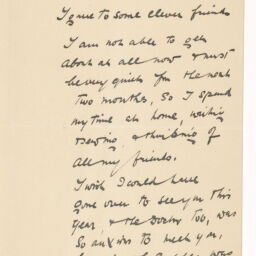 I gave to some clever friends
I am not able to get
about at all now & must
be very quiet for the next
two months, so I spend
my time at home, writing
& sewing, & thinking of
all my friends.
I wish I could have
gone over to see you this
year, & the Doctor too, was
so anxious to meet you,
was